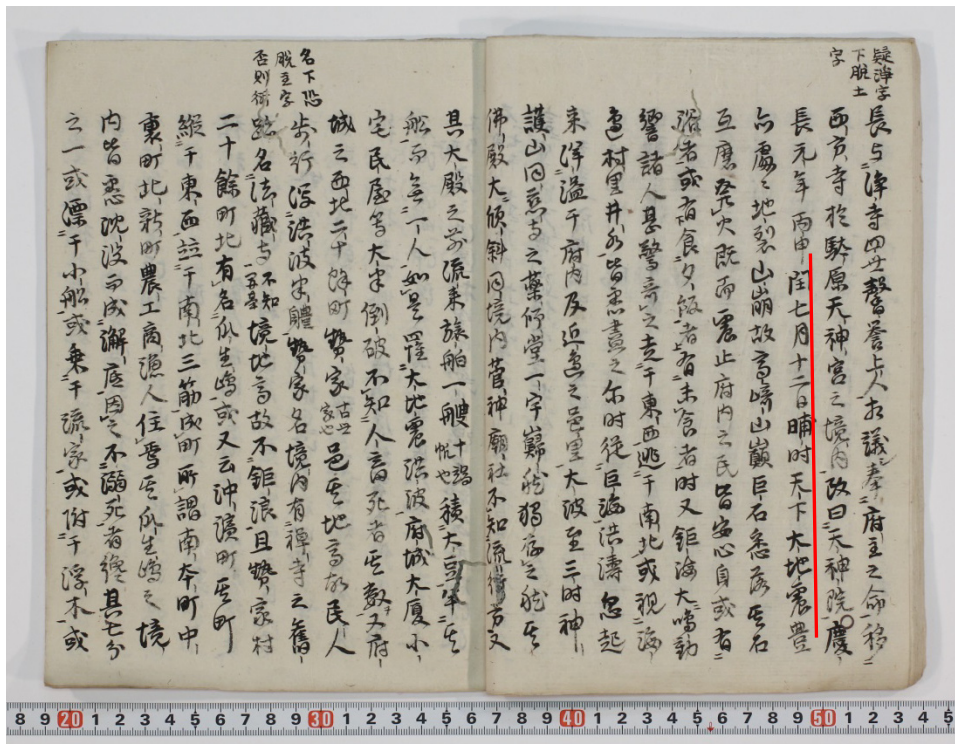 疑淨字
下脫土
字
長与淨寺四世聲誉上人相議奉府主之命移
西方寺於騎原天神宮之境内改曰天神院慶
長元年丙申閏七月十二日晡時天下大地震豊
府處々地裂山崩故高﨑山巓巨石悉落其石
互磨発火既而震止府内之民皆安心身或有
浴者或有食夕飯者有未食者時又鉅海大鳴動
響諸人甚驚奇之走于東西逃于南北或視海
邊村里井水皆悉盡之尓時従巨海洪濤忽起
来洋溢于府内及近邊之邑里大波至三時神
護山同慈寺之薬師堂一宇巋然獨存之然其
佛殿大傾斜同境内菅神廟社不知流
其大殿之前流来旅舶一艘十端帆也積大豆半其
舩而無一人如是罹大地震洪波府城大厦小
宅民屋等大半倒破不知人畜死者其数又府
城之西北二十餘町勢家邑其地高故民人
名下恐
脫主字
否則衍
歩行浮洪波半體勢家名境内有禅寺之舊
跡名法蔵寺不知境地高故不鉅浪且勢家村
二十餘町北有名瓜生嶋或又云沖濱町其町
縦于東西竝于南北三筋成町所謂南本町中
裏町北新町農工商漁人住焉其瓜生嶋之境
内皆悉沈没而成海底因之不溺死者纔其七分
之一或漂于小船或乗于流家或附于浮木或
8 9 20 1 2 3 4 5 6 7 8 9 30 1 2 3 4 5 6 7 8 9 40 1 2 3 4 5 6 7 8 9 50 1 2 3 4 5